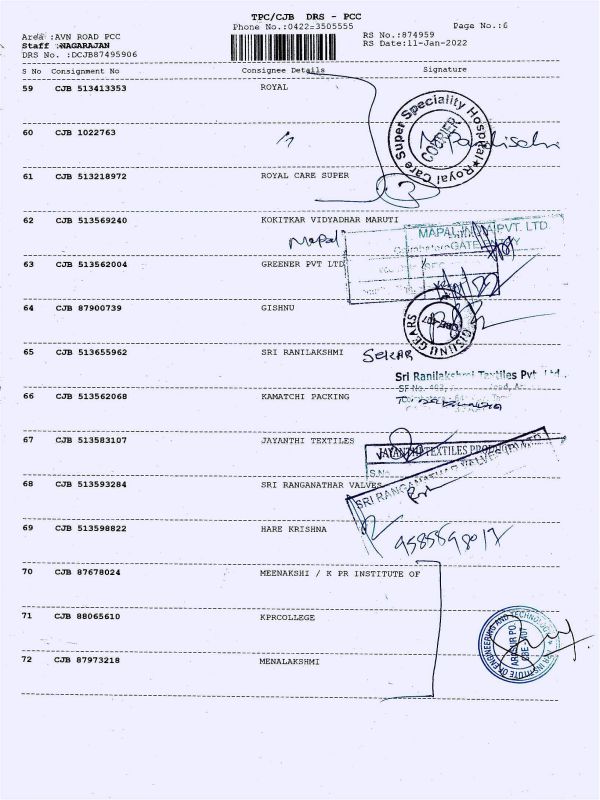 TPC/CJB DRS - PCC
Phone No.:0422-3505555
Page No.:6
Area :AVN ROAD PCC
RS No.:874959
Staff :NAGARAJAN
RS Date:11-Jan-2022
DRS No. :DCJB87495906
S No Consignment No Consignee Details Signature
59 CJB 513413353 ROYAL
60 CJB 1022763
61 CJB 513218972 ROYAL CARE SUPER
Royal Care Super Speciality Hospital
COURIER
62 CJB 513569240 KOKITKAR VIDYADHAR MARUTI
Mapal
MAPAL INDIA PVT. LTD
Coimbatore GATE ENTRY
63 CJB 513562004 GREENER PVT LTD
64 CJB 87900739 GISHNU
GISHNU GEARS
65 CJB 513655962 SRI RANILAKSHMI SEKAR
Sri Ranilakshmi Textiles Pvt Ltd.,
66 CJB 513562068 KAMATCHI PACKING
67 CJB 513583107 JAYANTHI TEXTILES
JAYANTHI TEXTILES
S.No
68 CJB 513593284 SRI RANGANATHAR VALVES
SRI RANGANATHAR VALVES
69 CJB 513598822 HARE KRISHNA
70 CJB 87678024 MEENAKSHI / K PR INSTITUTE OF
71 CJB 88065610 KPRCOLLEGE
INSTITUTE OF ENGINEERING AND TECHNOLOGY
72 CJB 87973218 MENALAKSHMI